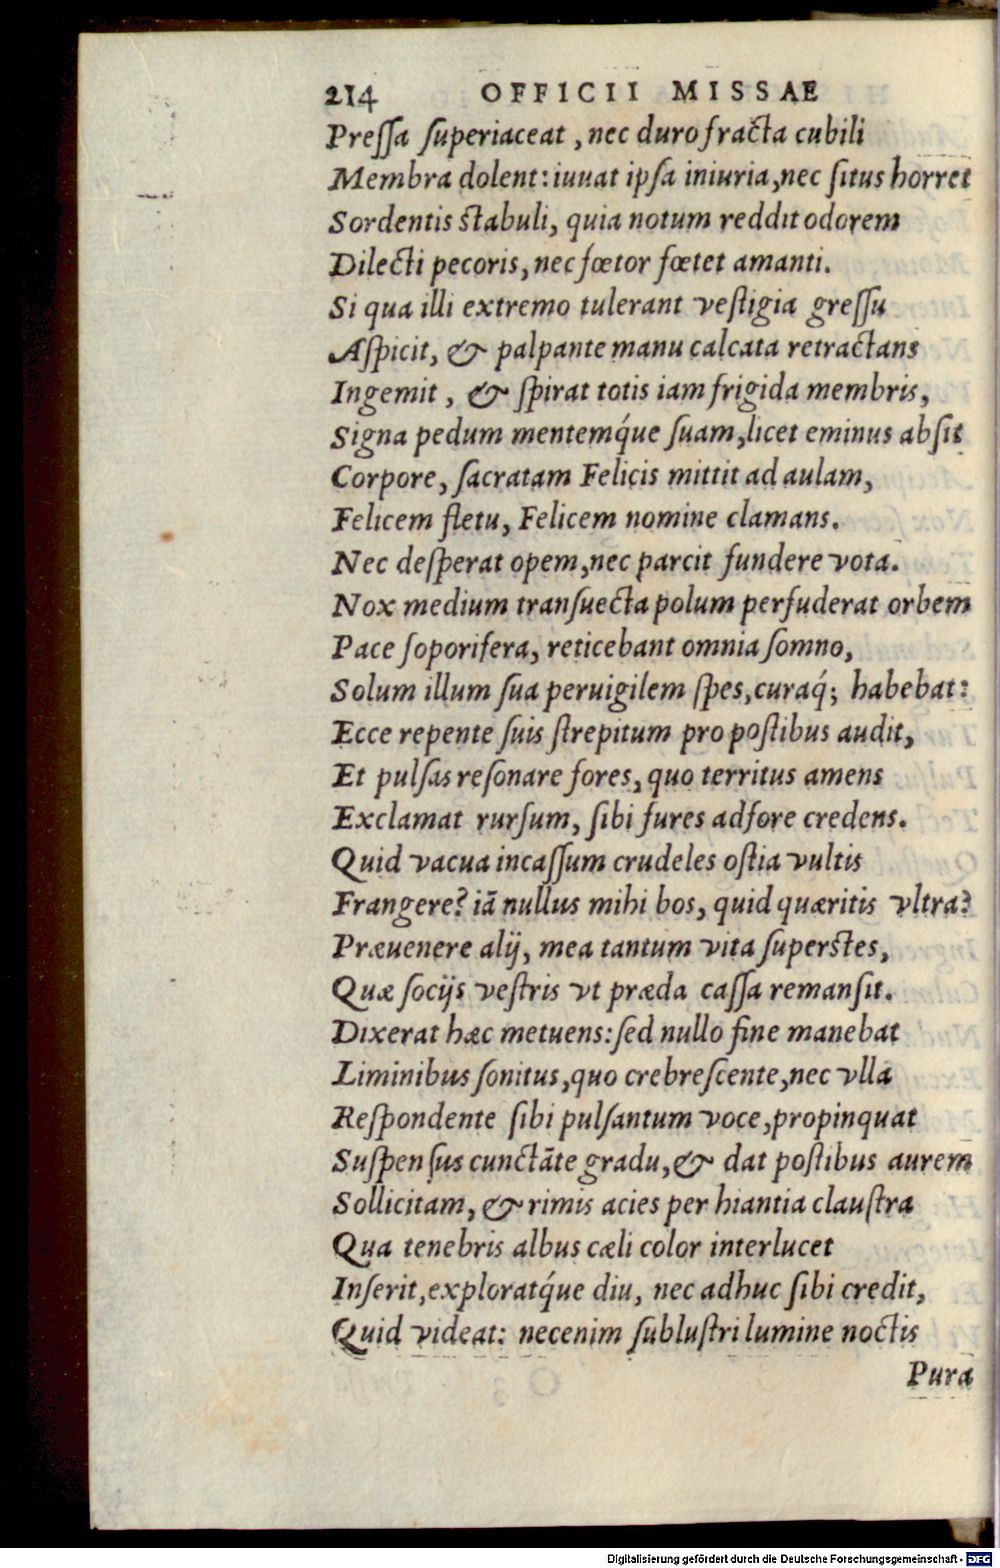 214 OFFICII MISSAE
Preſſa ſuperiaceat, nec duro fracta cubili
Membra dolent: iuuat ipſa iniuria, nec ſitus horret
Sordentis ſtabuli, quia notum reddit odorem
Dilecti pecoris, nec fœtor fœtet amanti.
Si qua illi extremo tulerant veſtigia greſſu
Aſpicit, & palpante manu calcata retractans
Ingemit, & ſpirat totis iam frigida membris,
Signa pedum mentemq́ue ſuam, licet eminus abſit
Corpore, ſacratam Felicis mittit ad aulam,
Felicem fletu, Felicem nomine clamans.
Nec deſperat opem, nec parcit fundere vota.
Nox medium tranſuecta polum perfuderat orbem
Pace ſoporifera, reticebant omnia ſomno,
Solum illum ſua peruigilem ſpes, curaq́; habebat:
Ecce repente ſuis ſtrepitum pro poſtibus audit,
Et pulſas reſonare fores, quo territus amens
Exclamat rurſum, ſibi fures adfore credens.
Quid vacua incaſſum crudeles oſtia vultis
Frangere? iã nullus mihi bos, quid quæritis vltra?
Præuenere alij, mea tantum vita ſuperſtes,
Quæ ſocijs veſtris vt præda caſſa remanſit.
Dixerat hæc metuens: ſed nullo fine manebat
Liminibus ſonitus, quo crebreſcente, nec vlla
Reſpondente ſibi pulſantum voce, propinquat
Suſpenſus cunctãte gradu, & dat poſtibus aurem
Sollicitam, & rimis acies per hiantia clauſtra
Qua tenebris albus cæli color interlucet
Inſerit, exploratq́ue diu, nec adhuc ſibi credit,
Quid videat: necenim ſubluſtri lumine noctis
Pura
Digitalisierung gefördert durch die Deutsche Forschungsgemeinschaft - DFG